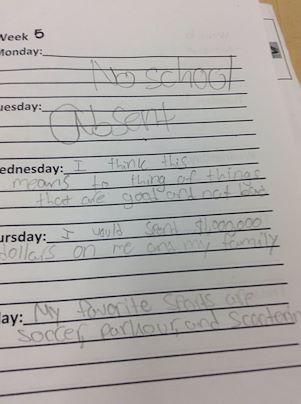 Week 5
Monday:
No school
uesday:
Absent
ednesday: I think this
means to thing of things
that are good and not bad
ursday: I would spent $1,000,000
dollars on me and my family
lay: My favorite sports are
soccer, parkour, and scooterin